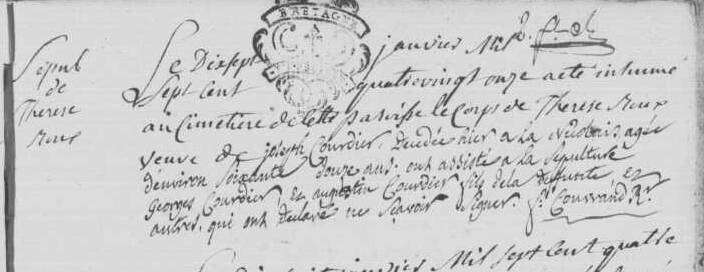 BRETAGNE
Sépul
de
Therese
Roux
Le Dixsept janvier Mil
Sept Cent quatrevingt onze a eté inhumé
au Cimetière de cette paroisse le Corps de Therese Roux
veuve de joseph Courdier, décédée hier a la agée
d'environ Soixante douze ans: ont assisté a la Sépulture
Georges Courdier, et augustin Courdier fils de la défunte et
autres, qui ont declaré ne Sçavoir Signer.
Mil sept Cent quatre